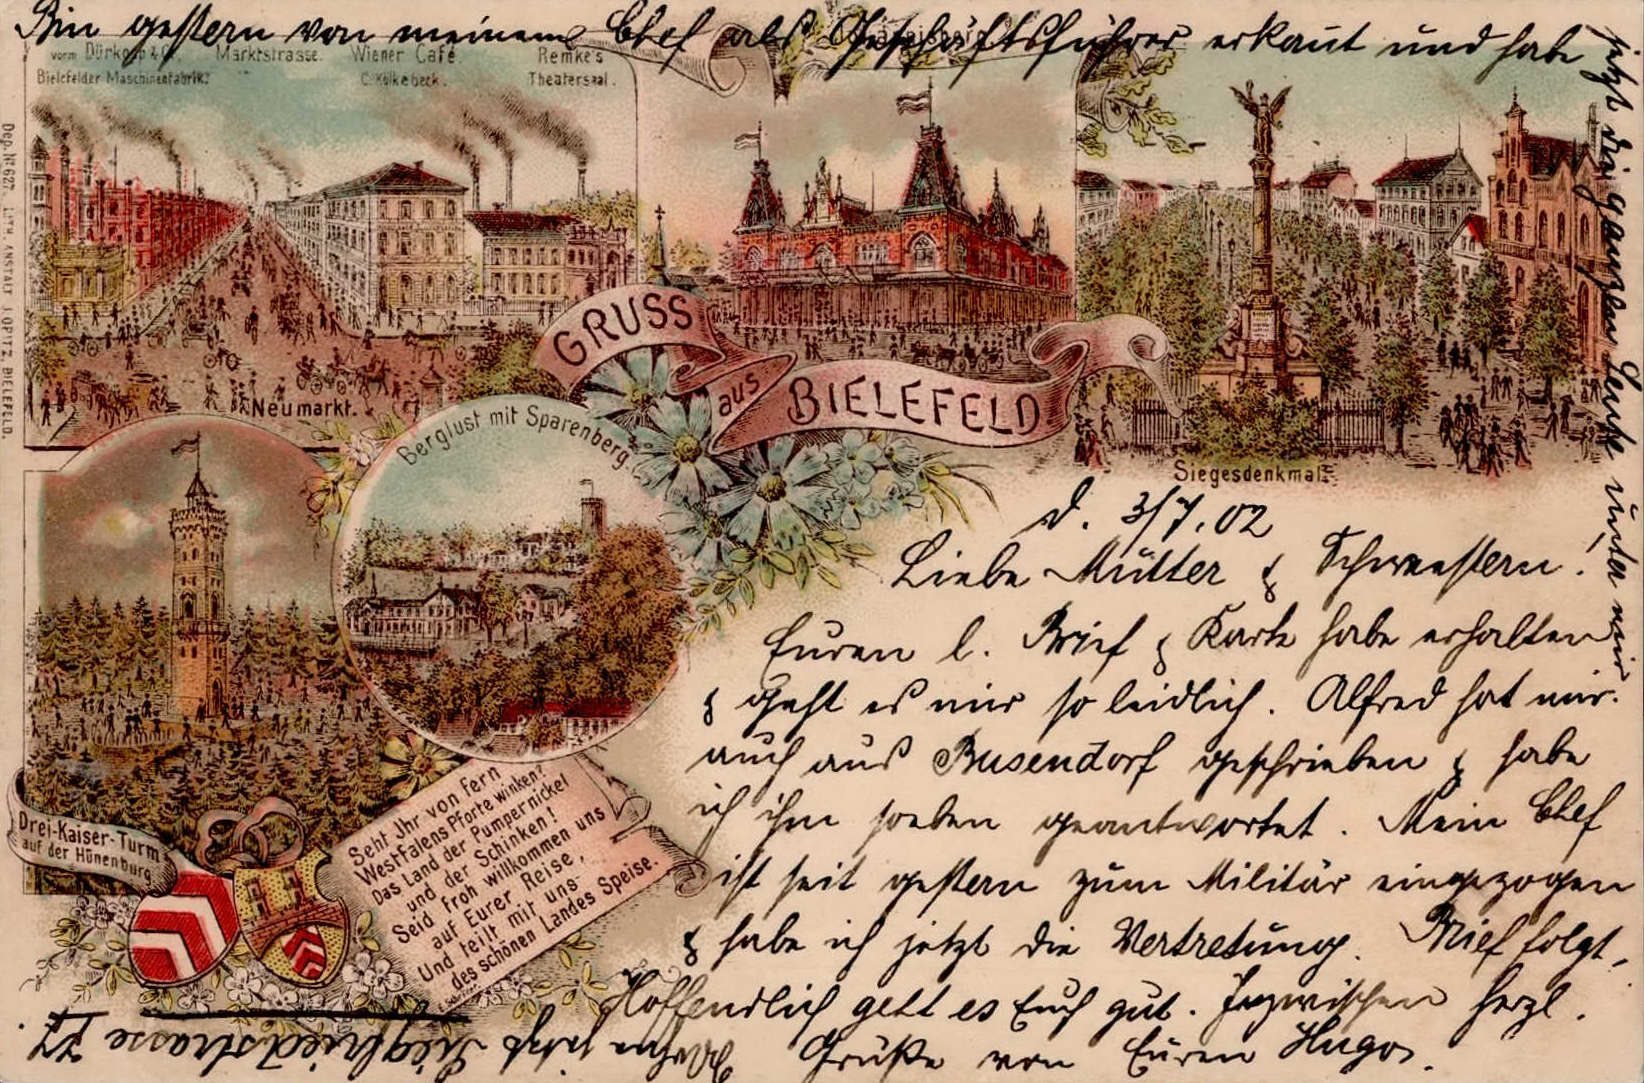 Bin gestern von meinem Chef als Geschäftsführer erkaut und habe
jetzt die ganzen Leute unter mir
vorm Dürkopp & Co.
Bielefelder Maschinenfabrik.
Marktstrasse.
Wiener Café.
C. Kölkebeck.
Remke's
Theatersaal.
Dep. No 627. LITH. ANSTALT J. OPITZ, BIELEFELD.
Neumarkt.
GRUSS
aus
BIELEFELD.
Siegesdenkmal.
Berglust mit Sparenberg.
Drei-Kaiser-Turm
auf der Hünenburg.
Seht Ihr von fern
Westfalens Pforte winken?
Das Land der Pumpernickel
und der Schinken!
Seid froh willkommen uns
auf Eurer Reise,
Und teilt mit uns
des schönen Landes Speise.
d. 3/7.02
Liebe Mutter & Schwestern!
Euren l. Brief & Karte habe erhalten
& geht es mir so leidlich. Alfred hat mir
auch aus Busendorf geschrieben & habe
ich ihm soeben geantwortet. Mein Chef
ist seit gestern zum Militär eingezogen
& habe ich jetzt die Vertretung. Brief folgt.
Hoffendlich geht es Euch gut. Inzwischen herzl.
Grüße von Euren Hugo.
Wohne jetzt Siegfriedstrasse 22